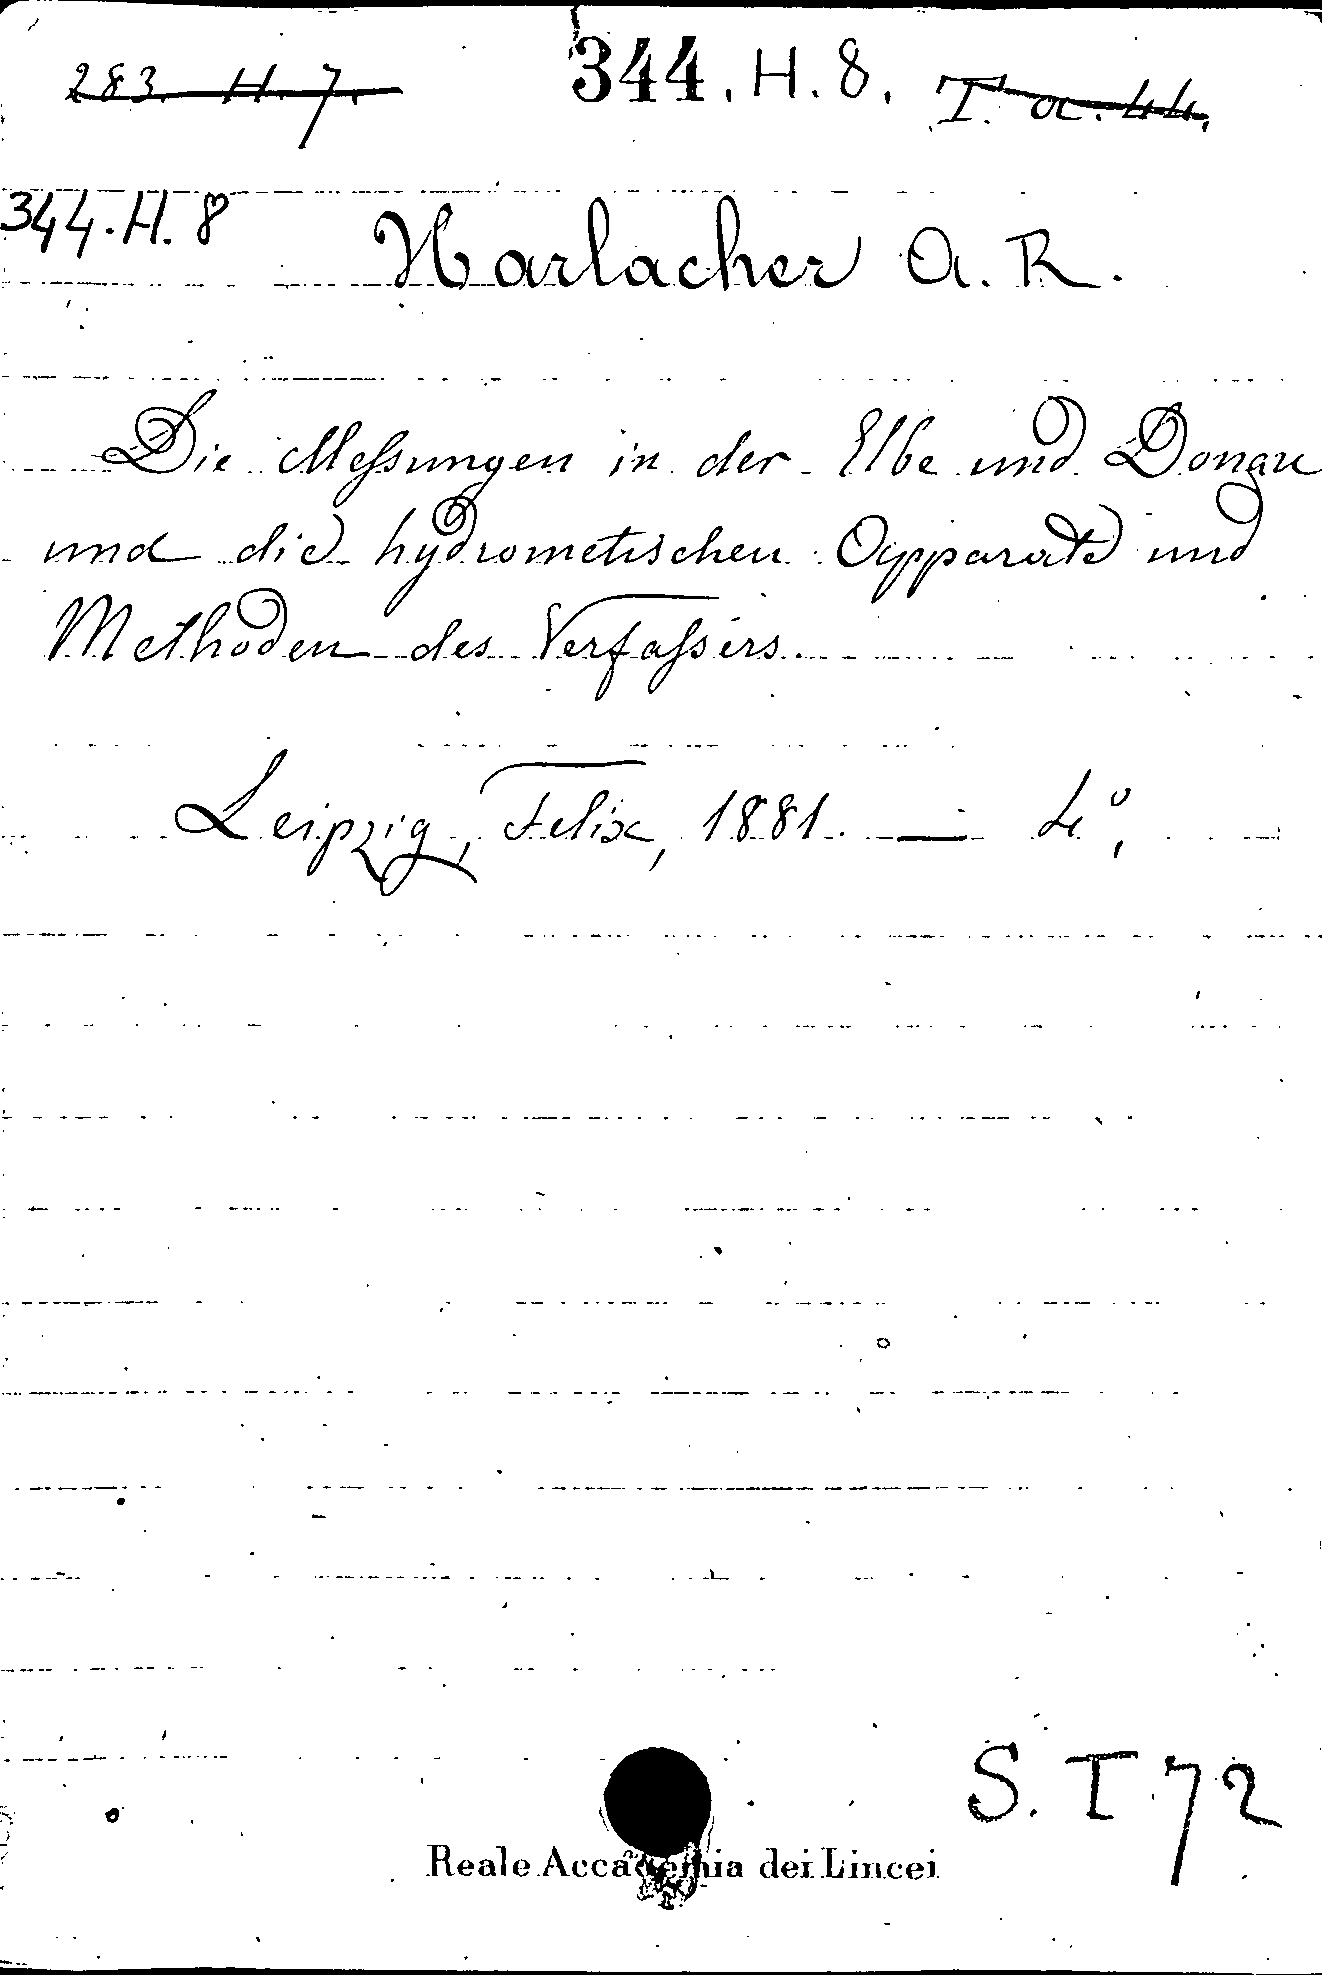 283. H. 7. 344. H. 8. T. a. 44.
344. H. 8
Harlacher A. R.
Die Meſsungen in der Elbe und Donau
und die hydrometischen Apparate und
Methoden des Verfaſsers.
Leipzig, Felix, 1881. — 4°,
S. T 72
Reale Accademia dei Lincei